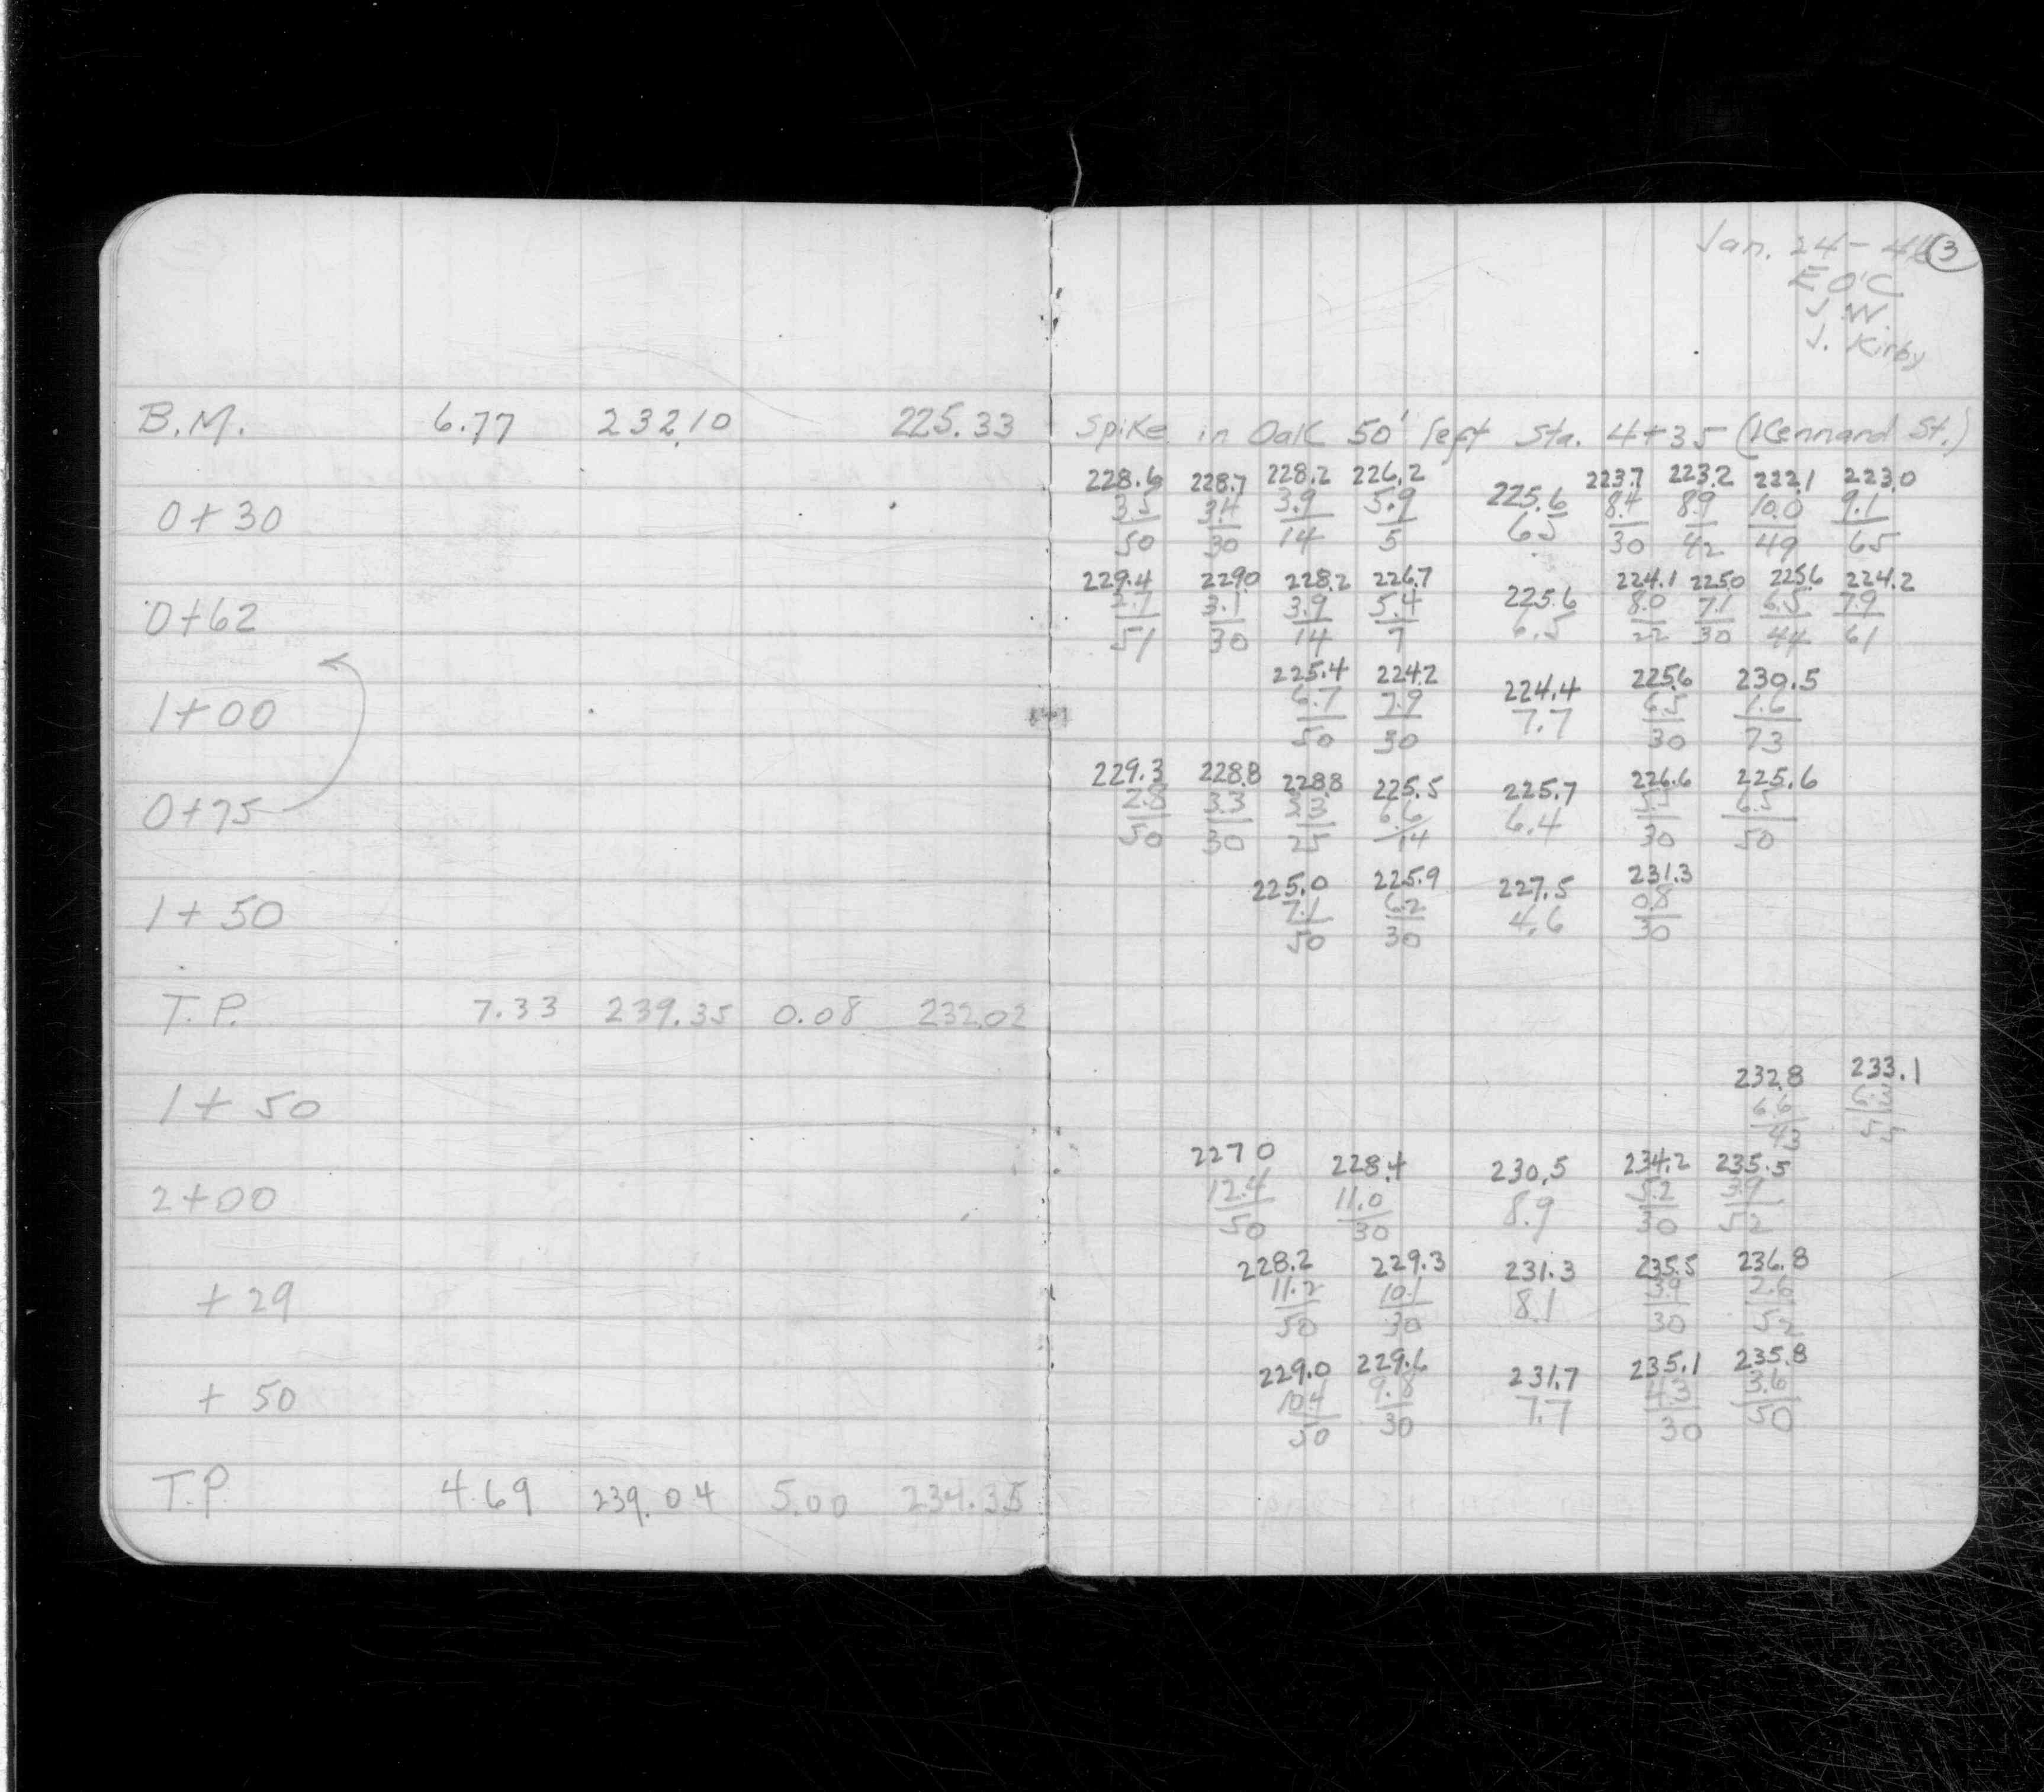 Jan. 24-46 3
E O'C
J.W.
J. Kirby
B.M. 6.77 232.10 225.33 Spike in Oak 50' left Sta. 4+35 (Kennard St.)
228.6 228.7 228.2 226.2 225.6 223.7 223.2 222.1 223.0
0+30 3.5 3.4 3.9 5.9 6.5 8.4 8.9 10.0 9.1
50 30 14 5 30 42 49 65
229.4 229.0 228.2 226.7 225.6 224.1 225.0 225.6 224.2
0+62 2.7 3.1 3.9 5.4 6.5 8.0 7.1 6.5 7.9
51 30 14 7 22 30 44 61
225.4 224.2 224.4 225.6 230.5
1+00 6.7 7.9 7.7 6.5 1.6
50 30 30 73
229.3 228.8 228.8 225.5 225.7 226.6 225.6
0+75 2.8 3.3 3.3 6.6 6.4 5.5 6.5
50 30 25 14 30 50
225.0 225.9 227.5 231.3
1+50 7.1 6.2 4.6 0.8
50 30 30
T.P. 7.33 239.35 0.08 232.02
232.8 233.1
1+50 6.6 6.3
43 55
227 0 228.4 230.5 234.2 235.5
2+00 12.4 11.0 8.9 5.2 3.9
50 30 30 52
228.2 229.3 231.3 235.5 236.8
+29 11.2 10.1 8.1 3.9 2.6
50 30 30 52
229.0 229.6 231.7 235.1 235.8
+50 10.4 9.8 7.7 4.3 3.6
50 30 30 50
T.P. 4.69 239.04 5.00 234.35